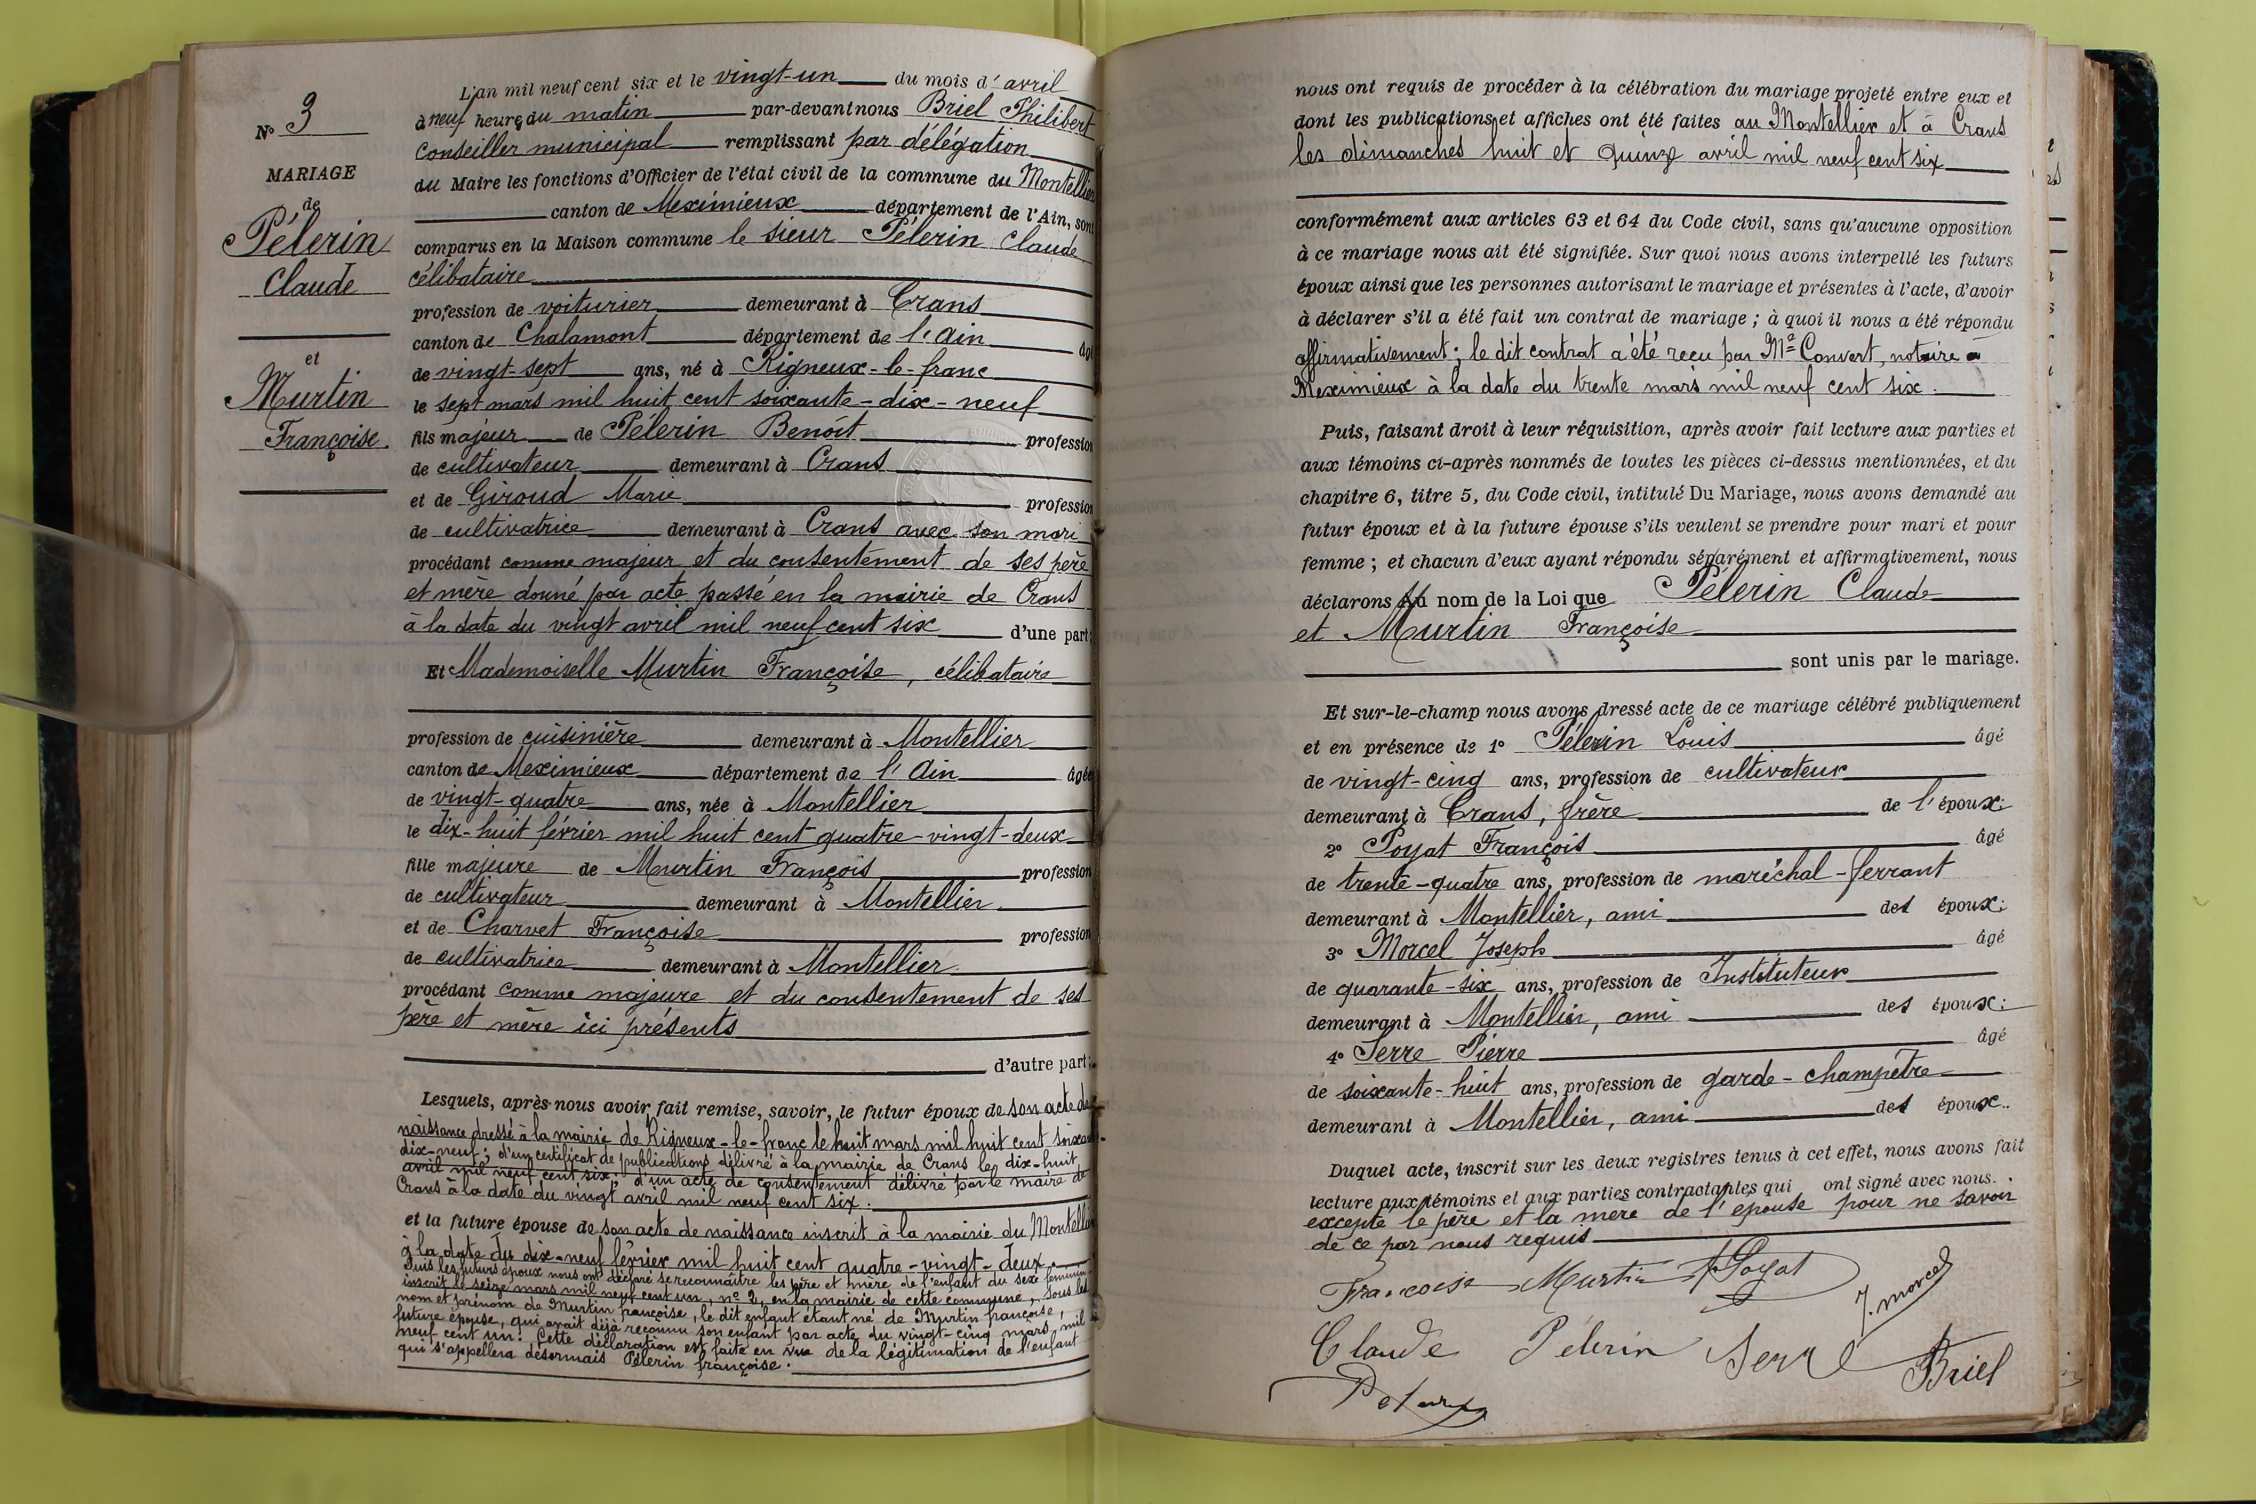 N° 3
MARIAGE
de
Pélerin
Claude
et
Murtin
Françoise.
L'an mil neuf cent six et le vingt-un du mois d'avril
à neuf heures du matin par-devant nous Briel Philibert
Conseiller municipal remplissant par délégation
du Maire les fonctions d'Officier de l'état civil de la commune du Montellier
canton de Meximieux département de l'Ain, sont
comparus en la Maison commune le sieur Pélerin Claude
célibataire
profession de voiturier demeurant à Crans
canton de Chalamont département de l'Ain âgé
de vingt-sept ans, né à Rigneux-le-franc
le sept mars mil huit cent soixante-dix-neuf
fils majeur de Pélerin Benoît profession
de cultivateur demeurant à Crans
et de Giroud Marie profession
de cultivatrice demeurant à Crans avec son mari
procédant comme majeur et du consentement de ses père
et mère donné par acte passé en la mairie de Crans
à la date du vingt avril mil neuf cent six d'une part;
Et Mademoiselle Murtin Françoise, célibataire
profession de cuisinière demeurant à Montellier
canton de Meximieux département de l'Ain âgée
de vingt-quatre ans, née à Montellier
le dix-huit février mil huit cent quatre-vingt-deux
fille majeure de Murtin François profession
de cultivateur demeurant à Montellier
et de Charvet Françoise profession
de cultivatrice demeurant à Montellier
procédant comme majeure et du consentement de ses
père et mère ici présents
d'autre part;
Lesquels, après nous avoir fait remise, savoir, le futur époux de son acte de
naissance dressé à la mairie de Rigneux-le-franc le huit mars mil huit cent soixante-
dix-neuf; d'un certificat de publications délivré à la mairie de Crans le dix-huit
avril mil neuf cent six; d'un acte de consentement délivré par le maire de
Crans à la date du vingt avril mil neuf cent six.
et la future épouse de son acte de naissance inscrit à la mairie du Montellier
à la date du dix-neuf février mil huit cent quatre-vingt-deux.
Puis les futurs époux nous ont déclaré se reconnaître les père et mère de l'enfant du sexe féminin
inscrit le seize mars mil neuf cent un, n° 2, en la mairie de cette commune, sous les
nom et prénom de Murtin françoise, le dit enfant étant né de Murtin françoise,
future épouse, qui avait déjà reconnu son enfant par acte du vingt-cinq mars mil
neuf cent un. Cette déclaration est faite en vue de la légitimation de l'enfant
qui s'appellera désormais Pélerin françoise.
nous ont requis de procéder à la célébration du mariage projeté entre eux et
dont les publications et affiches ont été faites au Montellier et à Crans
les dimanches huit et quinze avril mil neuf cent six
conformément aux articles 63 et 64 du Code civil, sans qu'aucune opposition
à ce mariage nous ait été signifiée. Sur quoi nous avons interpellé les futurs
époux ainsi que les personnes autorisant le mariage et présentes à l'acte, d'avoir
à déclarer s'il a été fait un contrat de mariage; à quoi il nous a été répondu
affirmativement; le dit contrat a été reçu par Me Convert, notaire à
Meximieux à la date du trente mars mil neuf cent six.
Puis, faisant droit à leur réquisition, après avoir fait lecture aux parties et
aux témoins ci-après nommés de toutes les pièces ci-dessus mentionnées, et du
chapitre 6, titre 5, du Code civil, intitulé Du Mariage, nous avons demandé au
futur époux et à la future épouse s'ils veulent se prendre pour mari et pour
femme; et chacun d'eux ayant répondu séparément et affirmativement, nous
déclarons Au nom de la Loi que Pélerin Claude
et Murtin Françoise
sont unis par le mariage.
Et sur-le-champ nous avons dressé acte de ce mariage célébré publiquement
et en présence de 1° Pélerin Louis âgé
de vingt-cinq ans, profession de cultivateur
demeurant à Crans, frère de l'époux;
2° Poyat François âgé
de trente-quatre ans, profession de maréchal-ferrant
demeurant à Montellier, ami des époux;
3° Morcel Joseph âgé
de quarante-six ans, profession de Instituteur
demeurant à Montellier, ami des époux;
4° Serre Pierre âgé
de soixante-huit ans, profession de garde-champêtre
demeurant à Montellier, ami des époux.
Duquel acte, inscrit sur les deux registres tenus à cet effet, nous avons fait
lecture aux témoins et aux parties contractantes qui ont signé avec nous.
excepté le père et la mère de l'épouse pour ne savoir
de ce par nous requis
Francoise Murtin f Poyat
J. morcel
Claude Pélerin Serre Briel